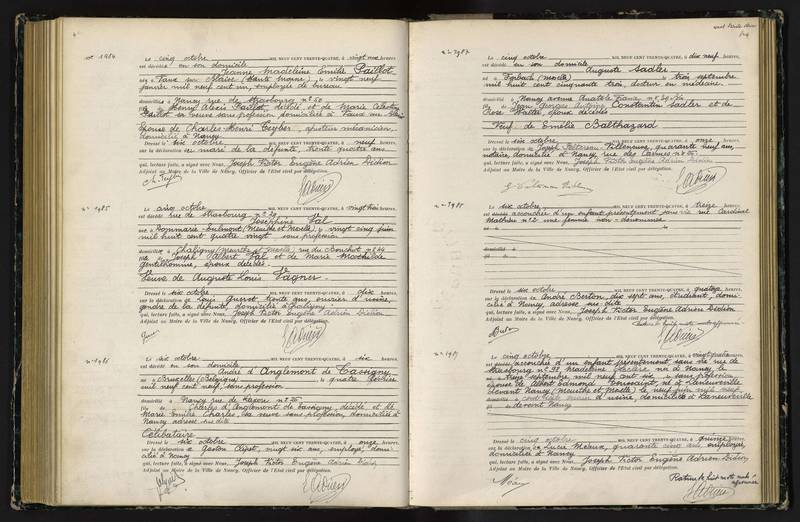 nº 1984
Le cinq octobre MIL NEUF CENT TRENTE-QUATRE, à vingt une heures,
est décédée en son domicile
Jeanne Madeleine Emilie Paillot
née à Vaux sur Blaise (Haute Marne), le vingt neuf
janvier mil neuf cent un, employée de bureau
domiciliée à Nancy rue de Strasbourg nº 50
fille de Henry Alexis Paillot, décédé, et de Marie Célestine
sa veuve sans profession domiciliée à Vaux sur Blaise
Epouse de Charles Henri Geyber, ajusteur mécanicien,
domicilié à Nancy
Dressé le six octobre MIL NEUF CENT TRENTE-QUATRE, à neuf heures,
sur la déclaration du mari de la défunte, trente quatre ans
qui, lecture faite, a signé avec Nous, Joseph Victor Eugène Adrien Didion
Adjoint au Maire de la Ville de Nancy, Officier de l'Etat civil par délégation.
nº 1985
Le cinq octobre MIL NEUF CENT TRENTE-QUATRE, à vingt trois heures,
est décédée rue de Strasbourg nº 29
Joséphine Val
née à Dommarie-Eulmont (Meurthe et Moselle), le vingt cinq juin
mil huit cent quatre vingt sans profession
domiciliée à Chaligny (Meurthe et Moselle) rue du Bouchot nº 64
fille de Joseph Albert Val et de Marie Mathilde
Gentilhomme, époux décédés
Veuve de Auguste Louis Vagner
Dressé le six octobre MIL NEUF CENT TRENTE-QUATRE, à dix heures,
sur la déclaration de Louis trente ans, ouvrier d'usine,
gendre de la défunte, domicilié à Chaligny
qui, lecture faite, a signé avec Nous, Joseph Victor Eugène Adrien Didion
Adjoint au Maire de la Ville de Nancy, Officier de l'Etat civil par délégation.
nº 1986
Le six octobre MIL NEUF CENT TRENTE-QUATRE, à six heures,
est décédé en son domicile
André d'Anglemont de Tassigny
né à Bruxelles (Belgique), le quatre février
mil neuf cent neuf, sans profession
domicilié à Nancy rue de nº 26
fils de Charles d'Anglemont de Tassigny, décédé, et de
Marie Emilie Charles, sa veuve sans profession, domiciliée à
Nancy adresse sus dite
Célibataire
Dressé le six octobre MIL NEUF CENT TRENTE-QUATRE, à onze heures,
sur la déclaration de Gaston vingt six ans, employé, domi-
cilié à Nancy
qui, lecture faite, a signé avec Nous, Joseph Victor Eugène Adrien Didion
Adjoint au Maire de la Ville de Nancy, Officier de l'Etat civil par délégation.
nº 1987
Le cinq octobre MIL NEUF CENT TRENTE-QUATRE, à dix neuf heures,
est décédé en son domicile
Auguste Sadler
né à Forbach (Moselle), le trois septembre
mil huit cent cinquante trois, docteur en médecine
domicilié à Nancy avenue Anatole France nº 29 bis
fils de Jean Georges Antoine Constantin Sadler et de
Rose Walter, époux décédés
Veuf de Emélie Balthazard
Dressé le six octobre MIL NEUF CENT TRENTE-QUATRE, à onze heures,
sur la déclaration de Joseph Villeneuve, quarante neuf ans,
notaire, domicilié à Nancy, rue des Carmes nº 25
qui, lecture faite, a signé avec Nous, Joseph Victor Eugène Adrien Didion
Adjoint au Maire de la Ville de Nancy, Officier de l'Etat civil par délégation.
nº 1988
Le six octobre MIL NEUF CENT TRENTE-QUATRE, à treize heures,
est accouchée d'un enfant présentement sans vie rue Cardinal
Mathieu nº 2 une femme non dénommée
domicilié à
Dressé le six octobre MIL NEUF CENT TRENTE-QUATRE, à quatorze heures,
sur la déclaration de André Berton, dix sept ans, étudiant, domi-
cilié à Nancy, adresse sus dite
qui, lecture faite, a signé avec Nous, Joseph Victor Eugène Adrien Didion
Adjoint au Maire de la Ville de Nancy, Officier de l'Etat civil par délégation.
nº 1989
Le cinq octobre MIL NEUF CENT TRENTE-QUATRE, à heures,
est accouchée d'un enfant présentement sans vie rue de
Strasbourg nº 98 Madeleine née à Nancy le
septembre mil neuf cent six sans profession
épouse de Albert Edmond Toussaint né à Laneuveville
devant Nancy (Meurthe et Moselle) le neuf juin mil neuf
d'usine, domiciliés à Laneuveville
devant Nancy
Dressé le cinq octobre MIL NEUF CENT TRENTE-QUATRE, à quinze heures,
sur la déclaration de quarante cinq ans, employée,
domiciliée à Nancy
qui, lecture faite, a signé avec Nous, Joseph Victor Eugène Adrien Didion
Adjoint au Maire de la Ville de Nancy, Officier de l'Etat civil par délégation.